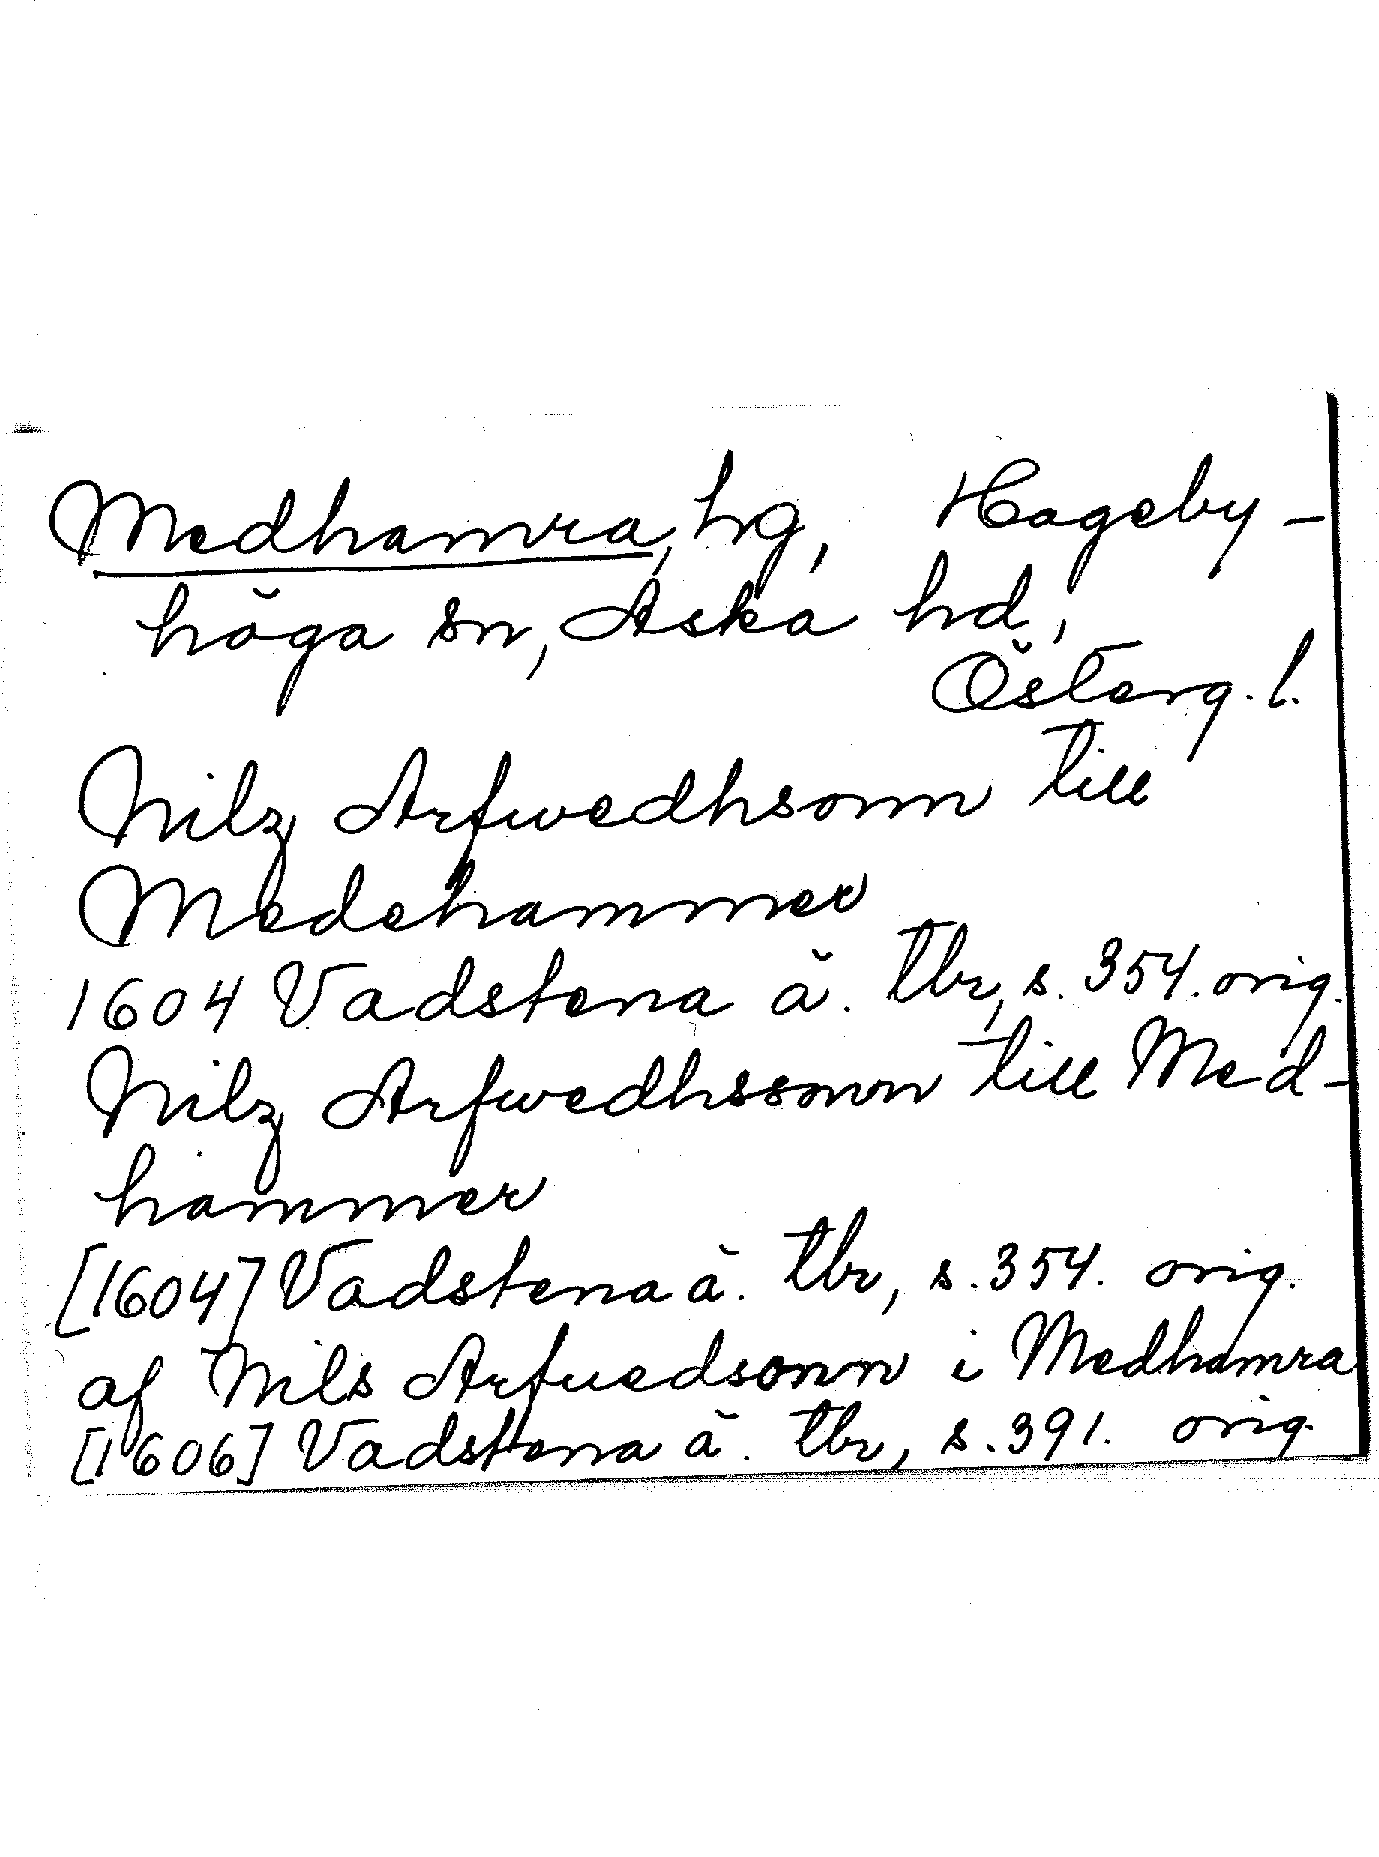 Medhamra, hg, Hageby-
höga sn, Aska hd,
Österg. l.
Nilz Arfwedhsonn till
Medehammer
1604 Vadstena ä. tbr, s. 354. orig.
Nilz Arfwedhssonn till Med-
hammer
[1604] Vadstena ä. tbr, s. 354. orig.
af Nils Arfuedsonn i Medhamra
[1606] Vadstena ä. tbr, s. 391. orig.